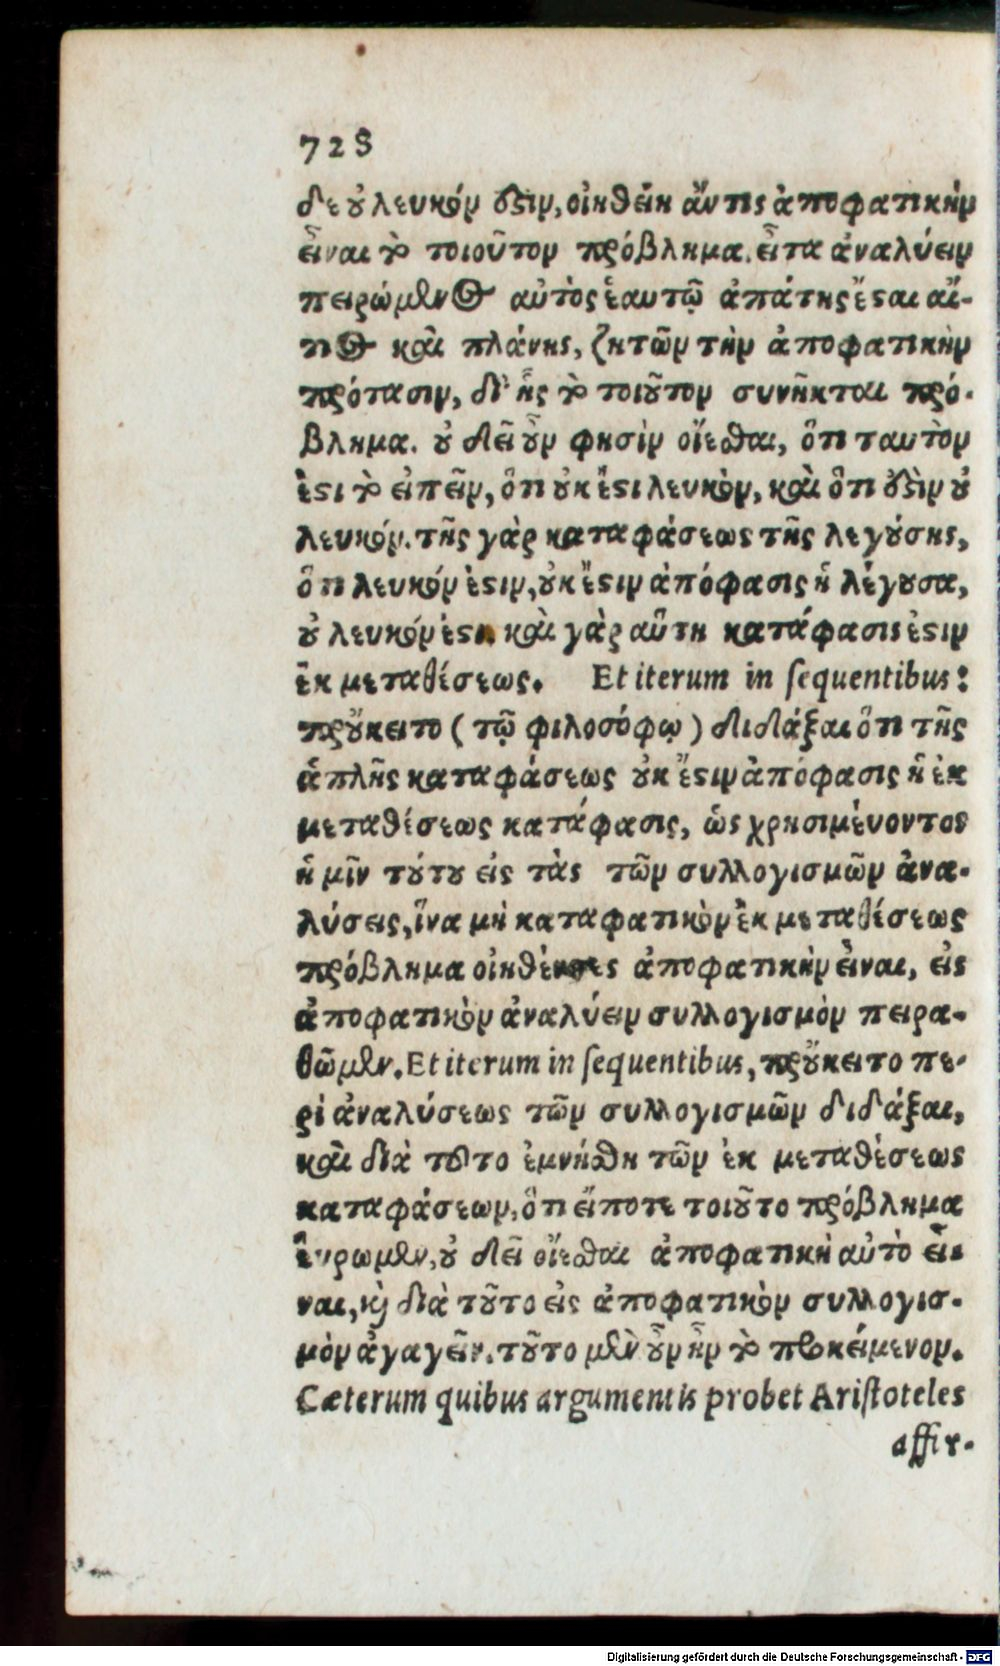 728
δε οὐ λευκόν ἐστιν, οἰηθείη ἄν τις ἀποφατικὴν
εἶναι τὸ τοιοῦτον πρόβλημα. εἶτα ἀναλύειν
πειρώμενος αὐτὸς ἑαυτῷ ἀπάτης ἔσται αἴ-
τιος καὶ πλάνης, ζητῶν τὴν ἀποφατικὴν
πρότασιν, δι' ἧς τὸ τοιοῦτον συνῆκται πρό-
βλημα. οὐ δεῖ οὖν φησὶν οἴεσθαι, ὅτι ταυτὸν
ἐστι τὸ εἰπεῖν, ὅτι οὐκ ἔστι λευκὸν, καὶ ὅτι ἐστὶν οὐ
λευκόν. τῆς γὰρ καταφάσεως τῆς λεγούσης,
ὅτι λευκόν ἐστιν, οὐκ ἔστιν ἀπόφασις ἡ λέγουσα,
οὐ λευκόν ἐστι. καὶ γὰρ αὕτη κατάφασις ἐστιν
ἐκ μεταθέσεως. Et iterum in sequentibus:
προὔκειτο (τῷ φιλοσόφῳ) διδάξαι ὅτι τῆς
ἁπλῆς καταφάσεως οὐκ ἔστιν ἀπόφασις ἡ ἐκ
μεταθέσεως κατάφασις, ὡς χρησιμεύοντος
ἡμῖν τούτου εἰς τὰς τῶν συλλογισμῶν ἀνα-
λύσεις, ἵνα μὴ καταφατικὸν ἐκ μεταθέσεως
πρόβλημα οἰηθέντες ἀποφατικὴν εἶναι, εἰς
ἀποφατικὸν ἀναλύειν συλλογισμὸν πειρα-
θῶμεν. Et iterum in sequentibus, προὔκειτο πε-
ρὶ ἀναλύσεως τῶν συλλογισμῶν διδάξαι,
καὶ διὰ τοῦτο ἐμνήσθη τῶν ἐκ μεταθέσεως
καταφάσεων, ὅτι εἴποτε τοιοῦτο πρόβλημα
εὕρωμεν, οὐ δεῖ οἴεσθαι ἀποφατικὴ αὐτὸ εἶ-
ναι, καὶ διὰ τοῦτο εἰς ἀποφατικὸν συλλογισ-
μὸν ἀγαγεῖν. τοῦτο μὲν οὖν ἦν τὸ προκείμενον.
Cæterum quibus argumentis probet Aristoteles
affir-
Digitalisierung gefördert durch die Deutsche Forschungsgemeinschaft - DFG